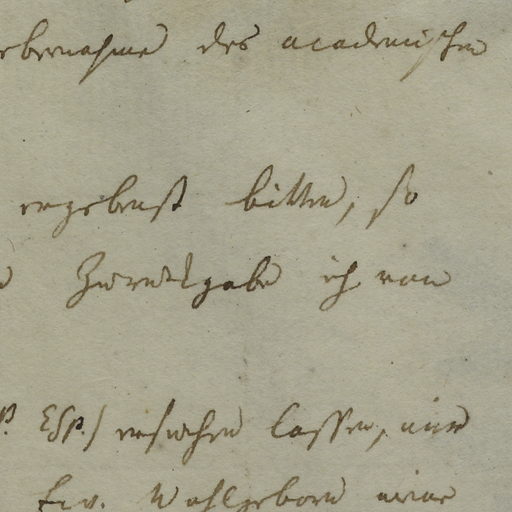 ebernahme des academischen
ergebenst bitten, so
Zurückgabe ich von
ersuchen lassen, nur
Ew. Wohlgeboren meine